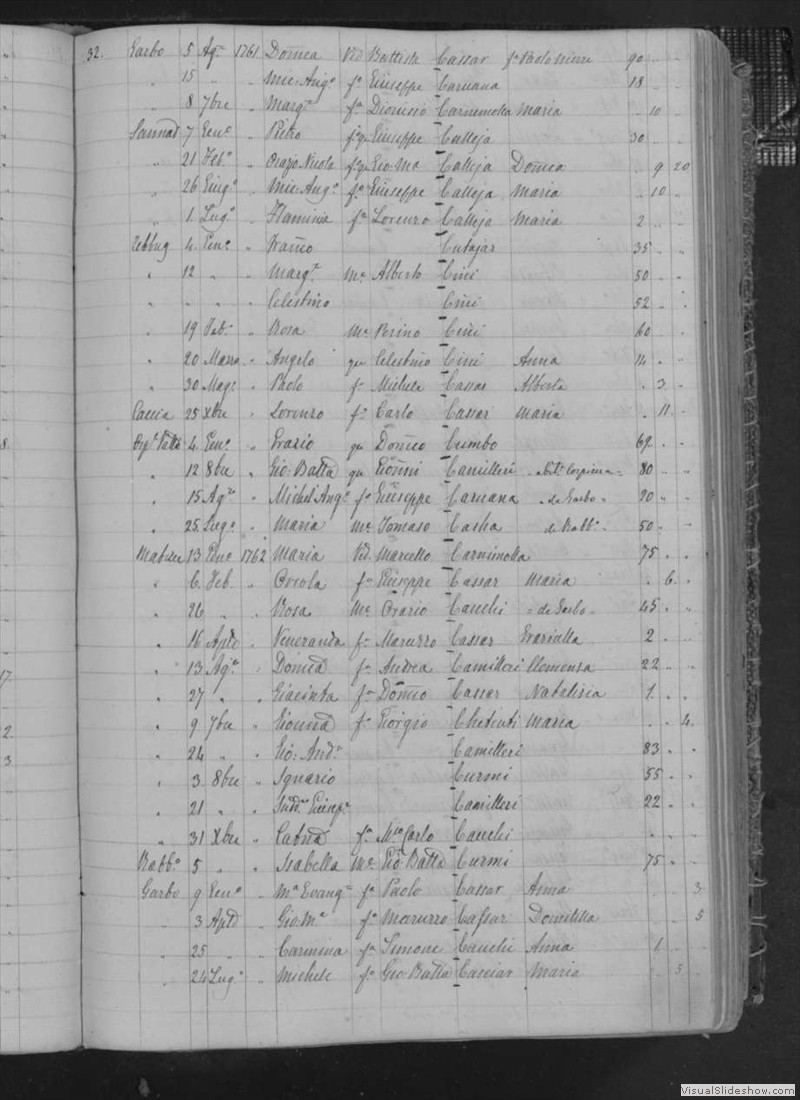 32. Garbo 5 Agº 1761 Domca Vid Battista Cassar 90
15 " " Mic: Angº fº Giuseppe Caruana 18
8 7bre " Margª fª Dionisio Carnemolla Maria 10
Sannat 7 Genº " Pietro Giuseppe Calleja 30
21 Febº " Orazio Nicola Gio Ma Calleja Domca 9 20
26 Giugº " Mic: Angº fº Giuseppe Calleja Maria 10
1 Lugº " Flaminia fª Lorenzo Calleja Maria 2
Zebbug 4 Genº " Franco Cutajar 35
12 " " Margª Me Alberto Cini 50
" " " Celestino Cini 52
19 Feb: " Rosa Me Cini 60
20 Marzo " Angelo qm Celestino Cini Anna 14
30 Magº " Paolo fº Michele Cassar Alberta 3
Caccia 25 Xbre " Lorenzo fº Carlo Cassar Maria 11
4 Genº " Erasio qm Domco Cumbo 62
12 8bre " Gio: Batta qm Gionni Camilleri 80
15 Agº " Michel'Angº fº Giuseppe Caruana de Garbo 20
25 Lugº " Maria Me Tomaso Casha de Rabbº 50
13 Genº 1762 Maria Vid. Marcello Carnimolla 75
6 Feb " Orsola fª Giuseppe Cassar Maria 6
26 " " Rosa Me Orazio Cauchi = de Garbo 45
16 Aple " Veneranda fª Maruzzo Cassar Grazialla 2
13 Agº " Domca fª Andrea Camilleri Clemensa 22
27 " " Giacinta fª Domco Cassar Natalizia 1
9 7bre " Gionna fª Giorgio Chetcuti Maria 4
24 " " Gio: Andª Camilleri 83
3 8bre " Ignazio Curmi 55
21 " " Giusepe Camilleri 22
31 Xbre " fª Carlo Cauchi
Rabbº 5 " " Isabella Me Gio: Batta Curmi 75
Garbo 9 Genº " Mª Evangª fª Paolo Cassar Anna 3
3 Aple " Gio: Mª fº Maruzzo Cassar Domitilla 5
25 " " Carmina fª Simone Cauchi Anna 1
24 Lugº " Michele fº Gio Batta Casciar Maria 5
8.
17
2
3
VisualSlideshow.com